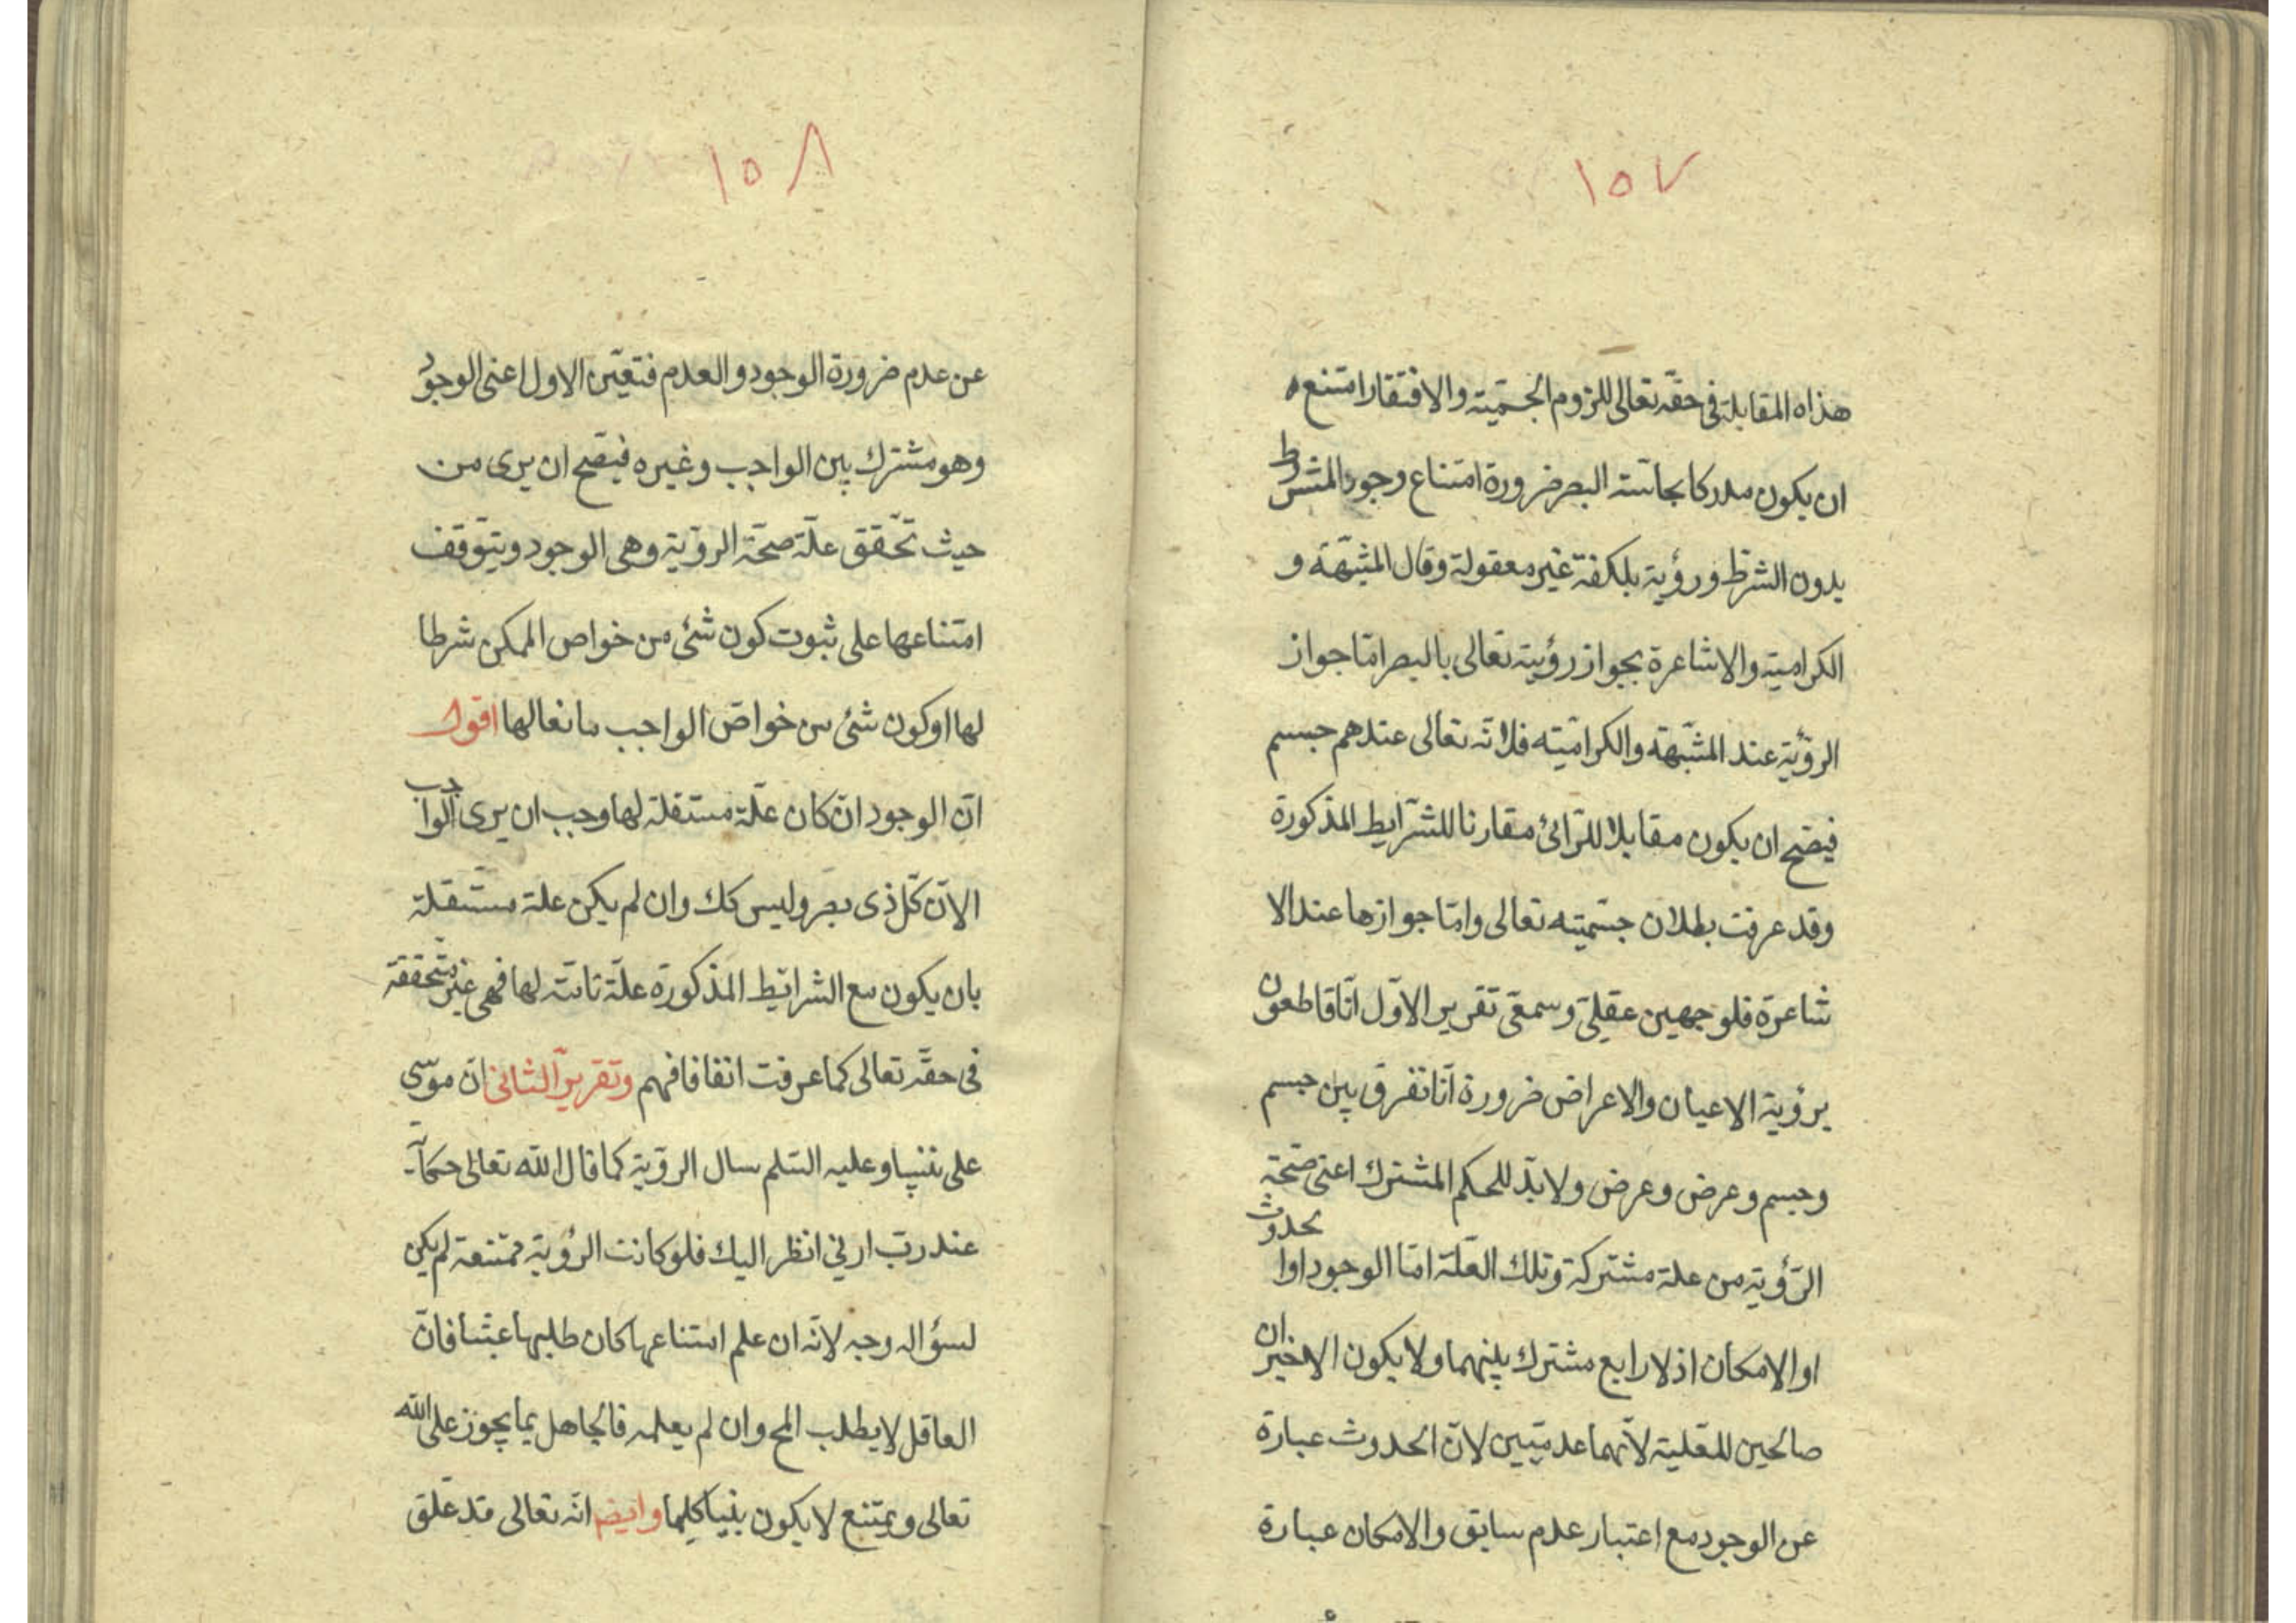 ١٥٧
هذاه المقابلة فى حقّه تعالى للزوم الجسميّة والافتقار امتنع
ان يكون مدركا بحاسّة البصر ضرورة امتناع وجود المشروط
بدون الشرط ورؤية بلكفة غير معقولة وقال المشبّهة و
الكرامية والاشاعرة بجواز رؤيته تعالى بالبصر امّا جواز
الرؤية عند المشبّهة والكراميّة فلانّه تعالى عندهم جسم
فيصّح ان يكون مقابلا للرّائى مقارنا للشرّايط المذكورة
وقد عرفت بطلان جسّميته تعالى وامّا جوازها عند الا
شاعرة فلوجهين عقلىّ وسمعىّ تقرير الاوّل انّا قاطعون
برؤية الاعيان والاعراض ضرورة انّا نفرق بين جسم
وجسم وعرض وعرض ولا بدّ للحكم المشترك اعنى صحّة
الرّؤية من علة مشتركة وتلك العلّة امّا الوجود او الحدوث
او الامكان اذ لا رابع مشترك بينهما ولا يكون الاخيران
صالحين للعّلية لانّهما عدميّين لانّ الحدوث عبارة
عن الوجود مع اعتبار عدم سابق والامكان عبارة
١٥٨
عن عدم ضرورة الوجود والعدم فتعيّن الاول اعنى الوجود
وهو مشترك بين الواجب وغيره فيصّح ان يرى من
حيث تحّقق علّة صحّة الرؤية وهى الوجود ويتوّقف
امتناعها على ثبوت كون شئ من خواص الممكن شرطا
لها او كون شئ من خواصّ الواجب مانعا لها اقول
انّ الوجود ان كان علّة مستقلة لها وجب ان يرى الواجب
الآن كلّ ذى بصر وليس كك وان لم يكن علة مستقلة
بان يكون مع الشرايط المذكورة علّة تامّة لها فهى غير متحققة
فى حقّه تعالى كما عرفت اتفاقا فهم وتقرير الثانى انّ موسى
على نبيّنا وعليه السّلم سال الرؤية كما قال الله تعالى حكاية
عنه ربّ ارنى انظر اليك فلو كانت الرؤية ممتنعة لم يكن
لسؤاله وجه لانّه ان علم امتناعها كان طلبها عبثا فانّ
العاقل لا يطلب المح وان لم يعلمه فالجاهل بما يجوز على الله
تعالى ويمتنع لا يكون نبيا كليما وايضا انّه تعالى قد علّق